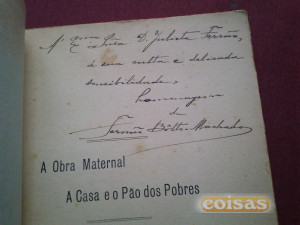 D. Julieta Ferrão,
á sua culta e delicada
sensibilidade,
homenagem
de
Machado
A Obra Maternal
A Casa e o Pão dos Pobres
coisas